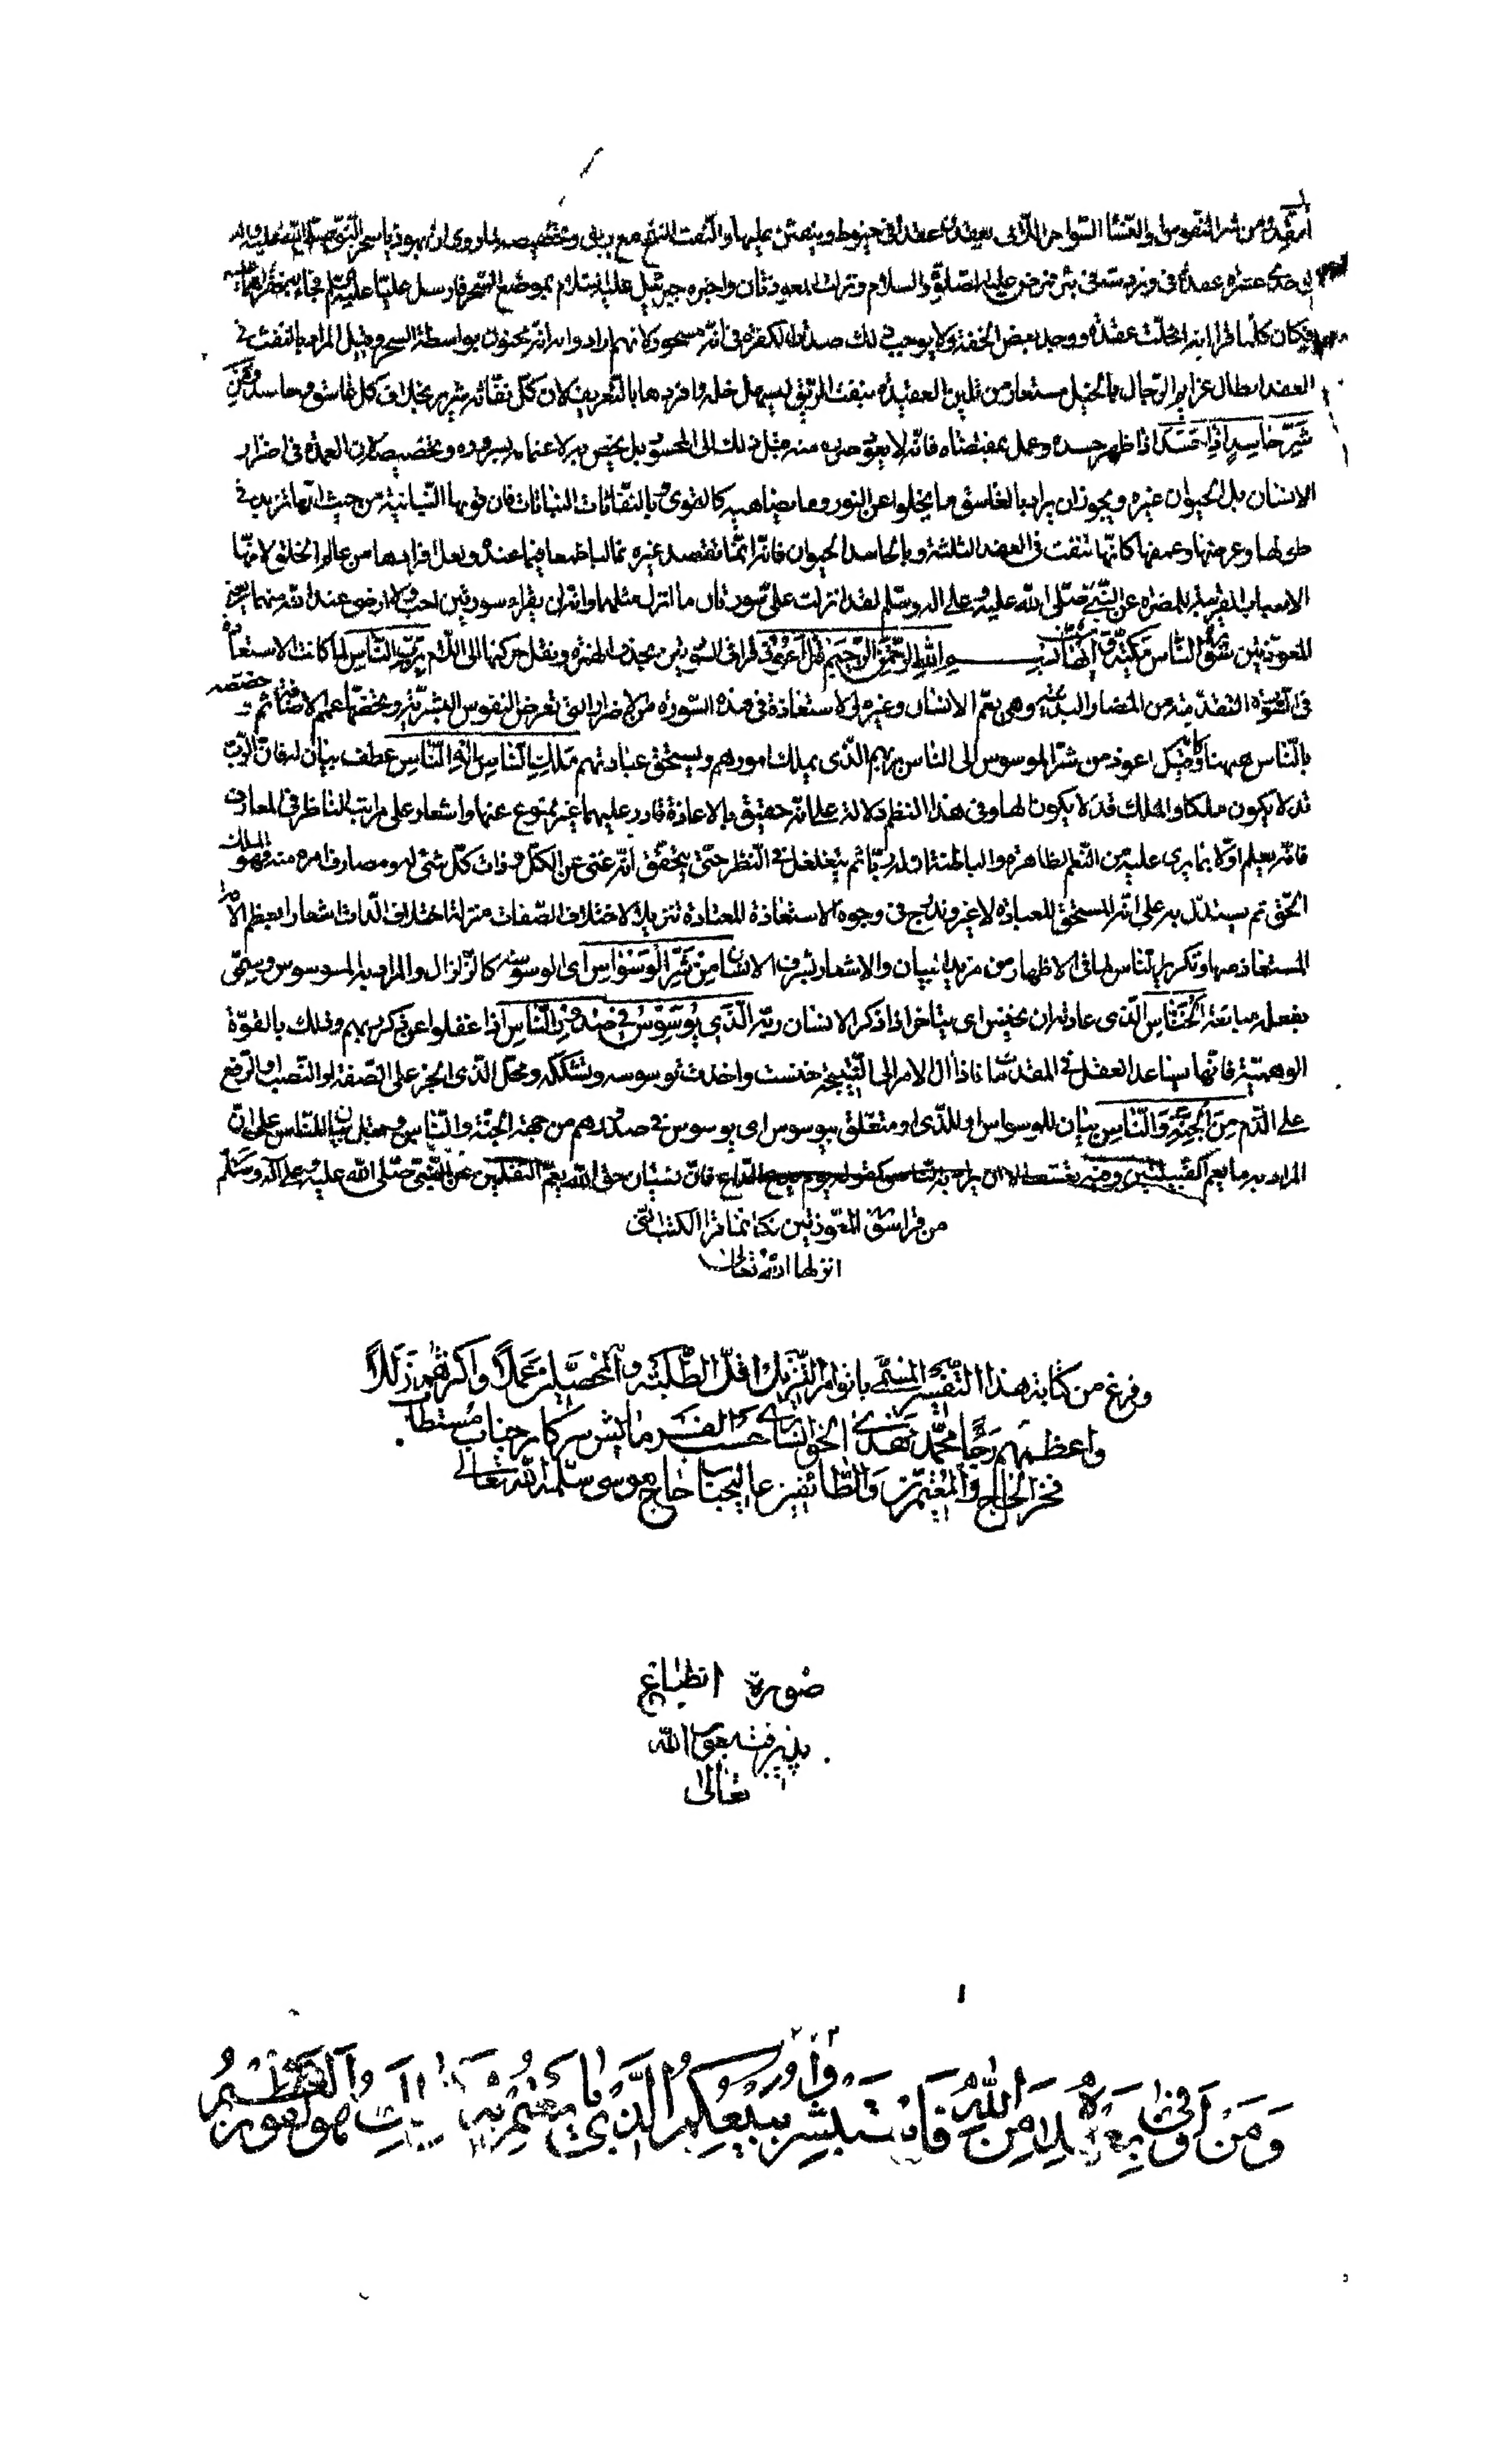 العقد ومن شر النفوس او النساء السواحر اللاتى يعقدن عقدا فى خيوط وينفثن عليها والنفث النفخ مع ريق وتخصيصه لما روى ان يهوديا سحر النبى صلى الله عليه وآله
فى احدى عشرة عقدة فى وتر دسه فى بئر فمرض عليه الصلوة والسلام ونزلت المعوذتان واخبره جبرئيل عليه السلام بموضع السحر فارسل عليا عليه السلم فجاء به فقراهما عليه
فكان كلما قرا اية انحلت عقدة ووجد بعض الخفة ولا يوجب ذلك صدق الكفرة فى انه مسحور لانهم ارادوا به انه مجنون بواسطة السحر وقيل المراد بالنفث فى
العقد ابطال عزايم الرجال بالحيل مستعار من تليين العقيدة بنفث الريق ليسهل حلها وافردها بالتعريف لان كل نفاثة شريرة بخلاف كل غاسق وحاسد ومن
شر حاسد اذا حسد اذا ظهر حسده وعمل بمقتضاه فانه لا يعود ضرره منه قبل ذلك الى المحسود بل يخص به لاغتمامه بسروره وتخصيصه لانه العمدة فى اضرار
الانسان بل الحيوان غيره ويجوز ان يراد بالغاسق ما يخلوا عن النور وما يضاهيه كالقوى وبالنفاثات النباتات فان قويها النباتية من حيث انها تزيد فى
طولها وعرضها وعمقها كانها تنفث فى العقد الثلثة وبالحاسد الحيوان فانه انما يقصد غيره غالبا طمعا فيما عنده ولعل افرادها من عالم الخلق لانها
الاسباب القريبة للمضرة عن النبى صلى الله عليه وعلى اله وسلم لقد انزلت على سورتان ما انزل مثلهما وانك لن يقراء سورتين احب ولا ارضى عند الله منهما يعنى
المعوذتين سورة الناس مكية وآيها ست بسم الله الرحمن الرحيم قل اعوذ قرائ فى السورتين بحذف الهمزة ونقل حركتها الى اللام برب الناس لما كانت الاستعاذة
فى السورة المتقدمة من المضار البدنية وهى يعم الانسان وغيره والاستعاذة فى هذه السورة من الاضرار التى تعرض النفوس البشرية ويخصها عمم الاضافة ثم وخصصه
بالناس ههنا فكانه قيل اعوذ من شر الموسوس الى الناس بربهم الذى يملك امورهم ويستحق عبادتهم ملك الناس اله الناس عطف بيان له فان الرب
قد لا يكون ملكا والملك قد لا يكون الها وفى هذا النظم دلالة على انه حقيق بالاعاذة قادر عليها غير ممنوع عنها واشعار على مراتب الناظر فى المعارف
فانه يعلم اولا بما يرى عليه من النعم الظاهرة والباطنة ان له ربا ثم يتغلغل فى النظر حتى يتحقق انه غنى عن الكل وذات كل شئ له ومصارف امره منه فهو الملك
الحق ثم يستدل به على انه المستحق للعبادة لا غير وتدرج فى وجوه الاستعاذة المعتادة تنزيلا لاختلاف الصفات منزلة اختلاف الذات اشعارا بعظم الافة
المستعاذ منها وتكرير الناس لما فى الاظهار من مزيد البيان والاشعار بشرف الانسان من شر الوسواس اى الوسوسة كالزلزال والمراد به الموسوس وسمى
بفعله مبالغة الخناس الذى عادته ان يخنس اى يتاخر اذا ذكر الانسان ربه الذى يوسوس فى صدور الناس اذا غفلوا عن ذكر ربهم وذلك بالقوة
الوهمية فانها يساعد العقل فى المقدمات فاذا آل الامر الى النتيجة خنست واخذت توسوسه وتشككه ومحل الذى الجر على الصفة او النصب او الرفع
على الذم من الجنة والناس بيان للوسواس او للذى او متعلق بيوسوس اى يوسوس فى صدورهم من جهة الجنة والناس وقيل بيان للناس على ان
المراد به ما يعم القبيلتين وفيه تعسف الا ان يراد به الناسى كقوله يوم يدع الداع فان نسيان حق الله يعم الثقلين عن النبى صلى الله عليه وعلى آله وسلم
من قرا سورة المعوذتين فكانما قرا الكتب التى
انزلها الله تعالى
وفرغ من كتابة هذا التفسير المسمى بانوار التنزيل اقل الطلبة والمحصلين عملا واكثرهم زللا
واعظمهم رجاء محمد مهدى الخوانسارى حسب الفرمايش سركار جناب مستطاب
فخر الحاج والمعتمرين والطائفين عاليجناب حاج موسى سلمه الله تعالى
صورة انطباع
پذيرفت بعون الله
تعالى
ومن اوفى بعهده من الله فاستبشروا ببيعكم الذى بايعتم به وذلك هو الفوز العظيم